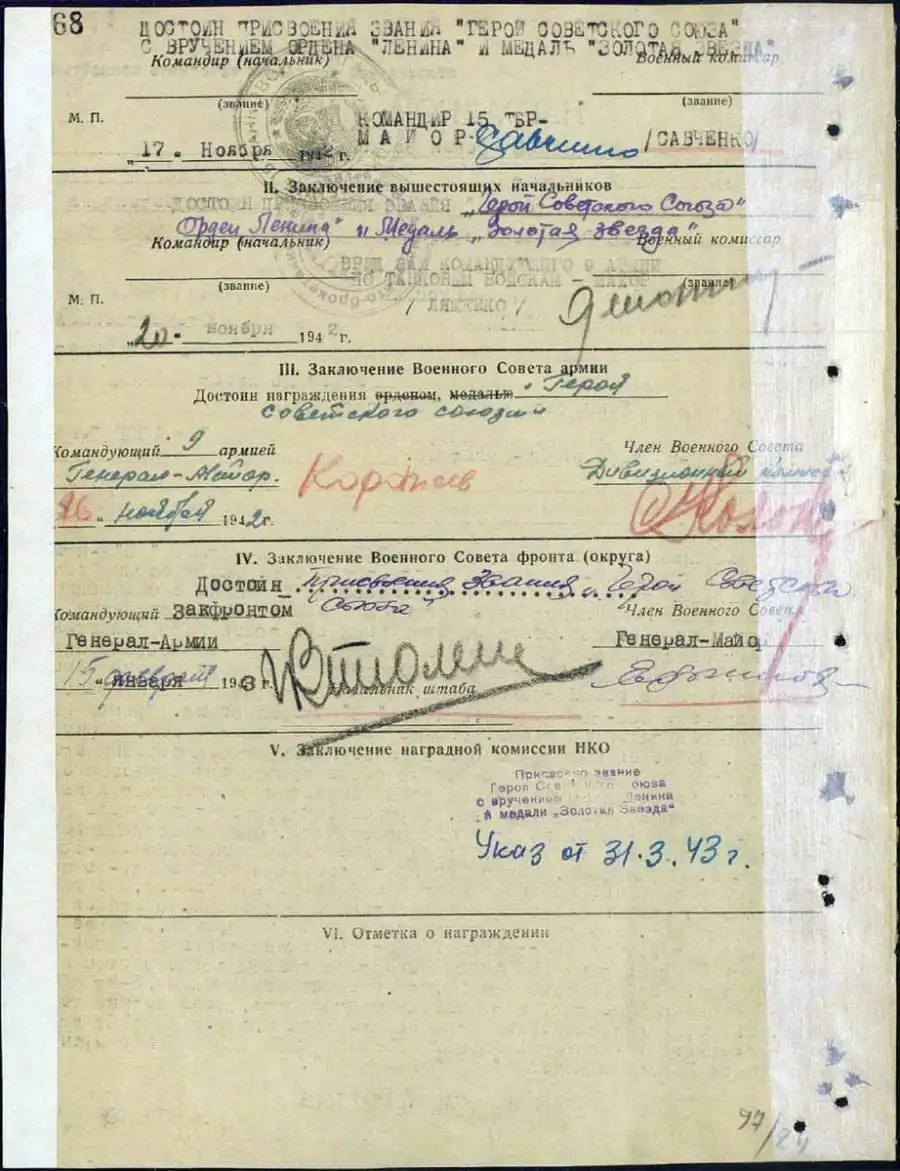 68
ДОСТОИН ПРИСВОЕНИЯ ЗВАНИЯ "ГЕРОЙ СОВЕТСКОГО СОЮЗА"
С ВРУЧЕНИЕМ ОРДЕНА "ЛЕНИНА" И МЕДАЛЬ "ЗОЛОТАЯ ЗВЕЗДА"
Командир (начальник) Военный комиссар
(звание) (звание)
М. П. КОМАНДИР 15 ТБР-
МАЙОР Савченко /САВЧЕНКО/
„17" Ноября 1942 г.
II. Заключение вышестоящих начальников
ДОСТОИН ПРИСВОЕНИЯ ЗВАНИЯ „Герой Советского Союза"
Орден Ленина" и Медаль „Золотая звезда"
Командир (начальник) Военный комиссар
ВРИД ЗАМ КОМАНДУЮЩЕГО 9 АРМИИ
(звание) ПО ТАНКОВЫМ ВОЙСКАМ - МАЙОР (звание)
М. П. / ЛЯШЕНКО /
„20" ноября 1942 г.
III. Заключение Военного Совета армии
Достоин награждения орденом, медалью „Герой
Советского союза"
Командующий 9 армией Член Военного Совета
Генерал-Майор. Коротеев Дивизионный
16 " ноября 1942 г.
IV. Заключение Военного Совета фронта (округа)
Достоин присвоения звания „Герой Советского
Командующий Закфронтом Союза" Член Военного Совета
Генерал-Армии Генерал-Майор
15 " февраля января 1943 г. Начальник штаба
V. Заключение наградной комиссии НКО
Присвоено звание
Героя Советского Союза
с вручением ордена Ленина
и медали „Золотая Звезда"
Указ от 31.3.43 г.
VI. Отметка о награждении
97